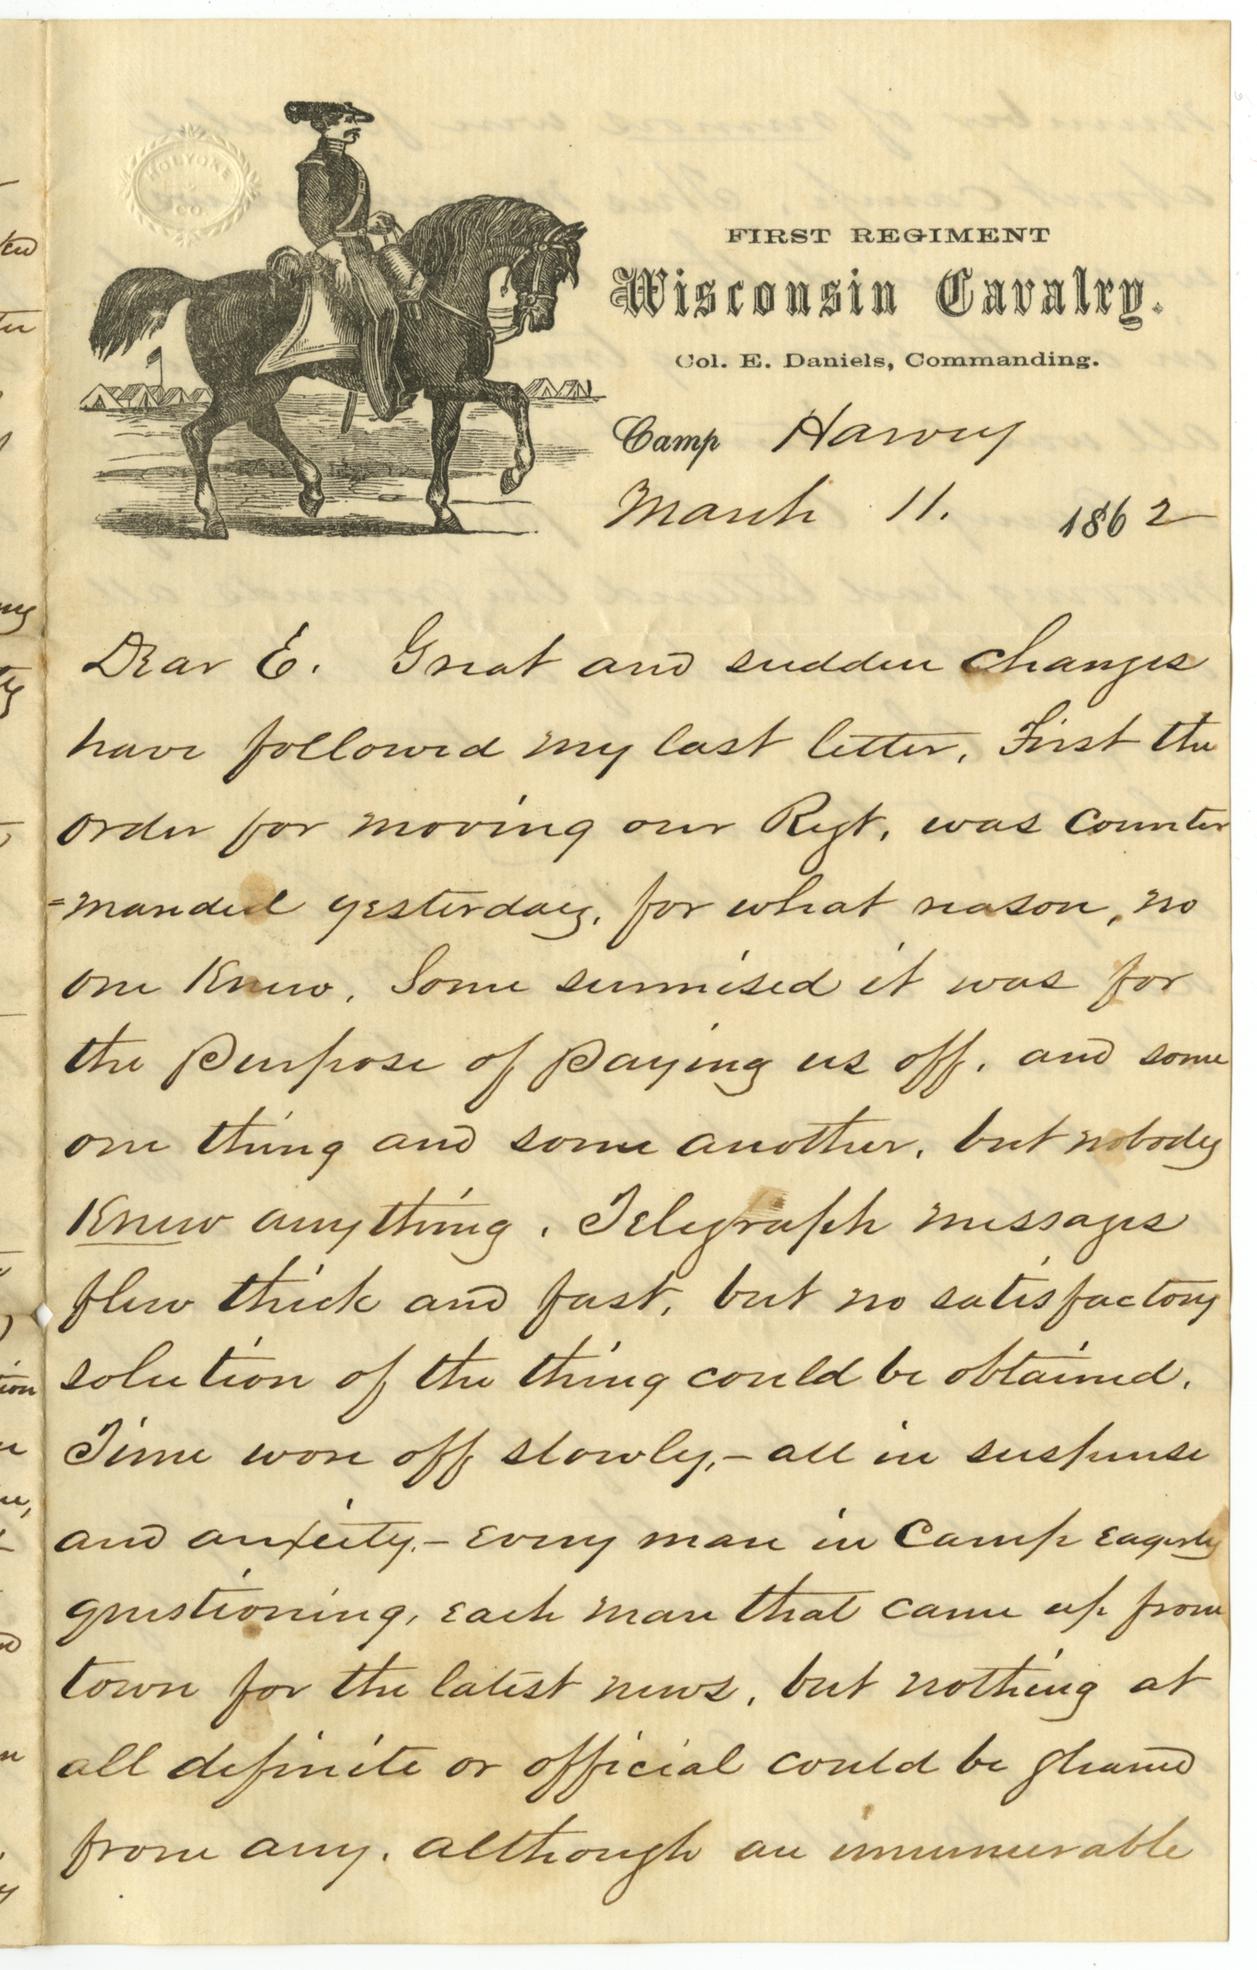 HOLYOKE
CO
FIRST REGIMENT
Wisconsin Cavalry.
Col. E. Daniels, Commanding.
Camp Harvey
March 11. 1862
Dear E. Great and sudden changes
have followed my last letter, First the
order for moving our Regt, was counter
=manded yesterday, for what reason, no
one knew. Some surmised it was for
the purpose of paying us off, and some
one thing and some another, but nobody
knew anything. Telegraph messages
flew thick and fast, but no satisfactory
solution of the thing could be obtained.
Time wore off slowly,- all in suspense
and anxiety,- every man in camp eagerly
questioning, each man that came up from
town for the latest news, but nothing at
all definite or official could be gleaned
from any, although an innumerable